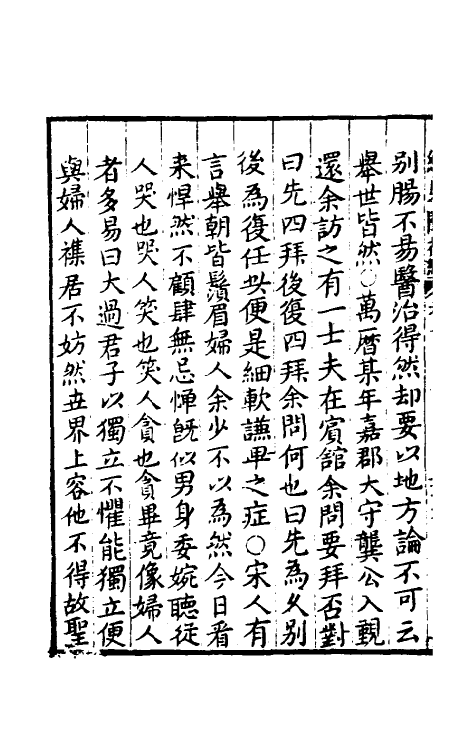 别腸不易醫治得然却要以地方論不可云
舉世皆然○萬曆某年嘉郡大守龔公入覲
還余訪之有一士夫在賓舘余問要拜否對
曰先四拜後復四拜余問何也曰先為久别
後為復任此便是細軟讌畢之症○宋人有
言舉朝皆鬚眉婦人余少不以為然今日看
来悍然不顧肆無忌憚旣似男身委婉聽從
人哭也哭人笑也笑人貪也貪畢竟像婦人
者多易曰大過君子以獨立不懼能獨立便
與婦人襍居不妨然丗界上容他不得故聖